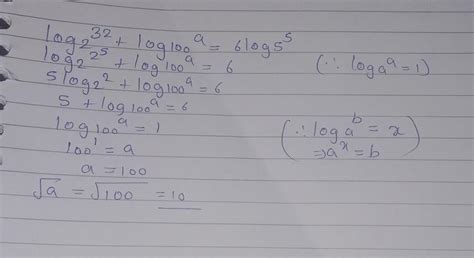 log₂³² + log₁₀₀ᵃ = 6log5⁵
log₂2⁵ + log₁₀₀ᵃ = 6 (∵ logₐᵃ = 1)
5log₂² + log₁₀₀ᵃ = 6
5 + log₁₀₀ᵃ = 6
log₁₀₀ᵃ = 1 (∵ logₐᵇ = x
100¹ = a ⇒ aˣ = b)
a = 100
√a = √100 = 10